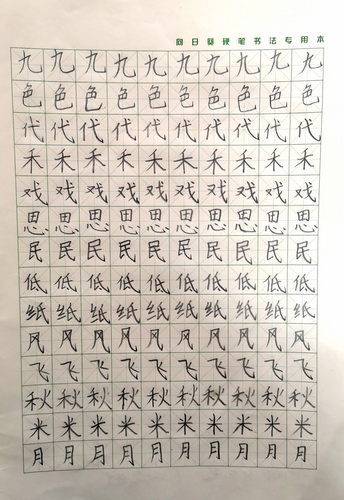 向日葵硬笔书法专用本
九九九九九九九九九九
色色色色色色色色色色
代代代代代代代代代代
禾禾禾禾禾禾禾禾禾禾
戏戏戏戏戏戏戏戏戏戏
思思思思思思思思思思
民民民民民民民民民民
低低低低低低低低低低
纸纸纸纸纸纸纸纸纸纸
风风风风风风风风风风
飞飞飞飞飞飞飞飞飞飞
秋秋秋秋秋秋秋秋秋秋
米米米米米米米米米米
月月月月月月月月月月